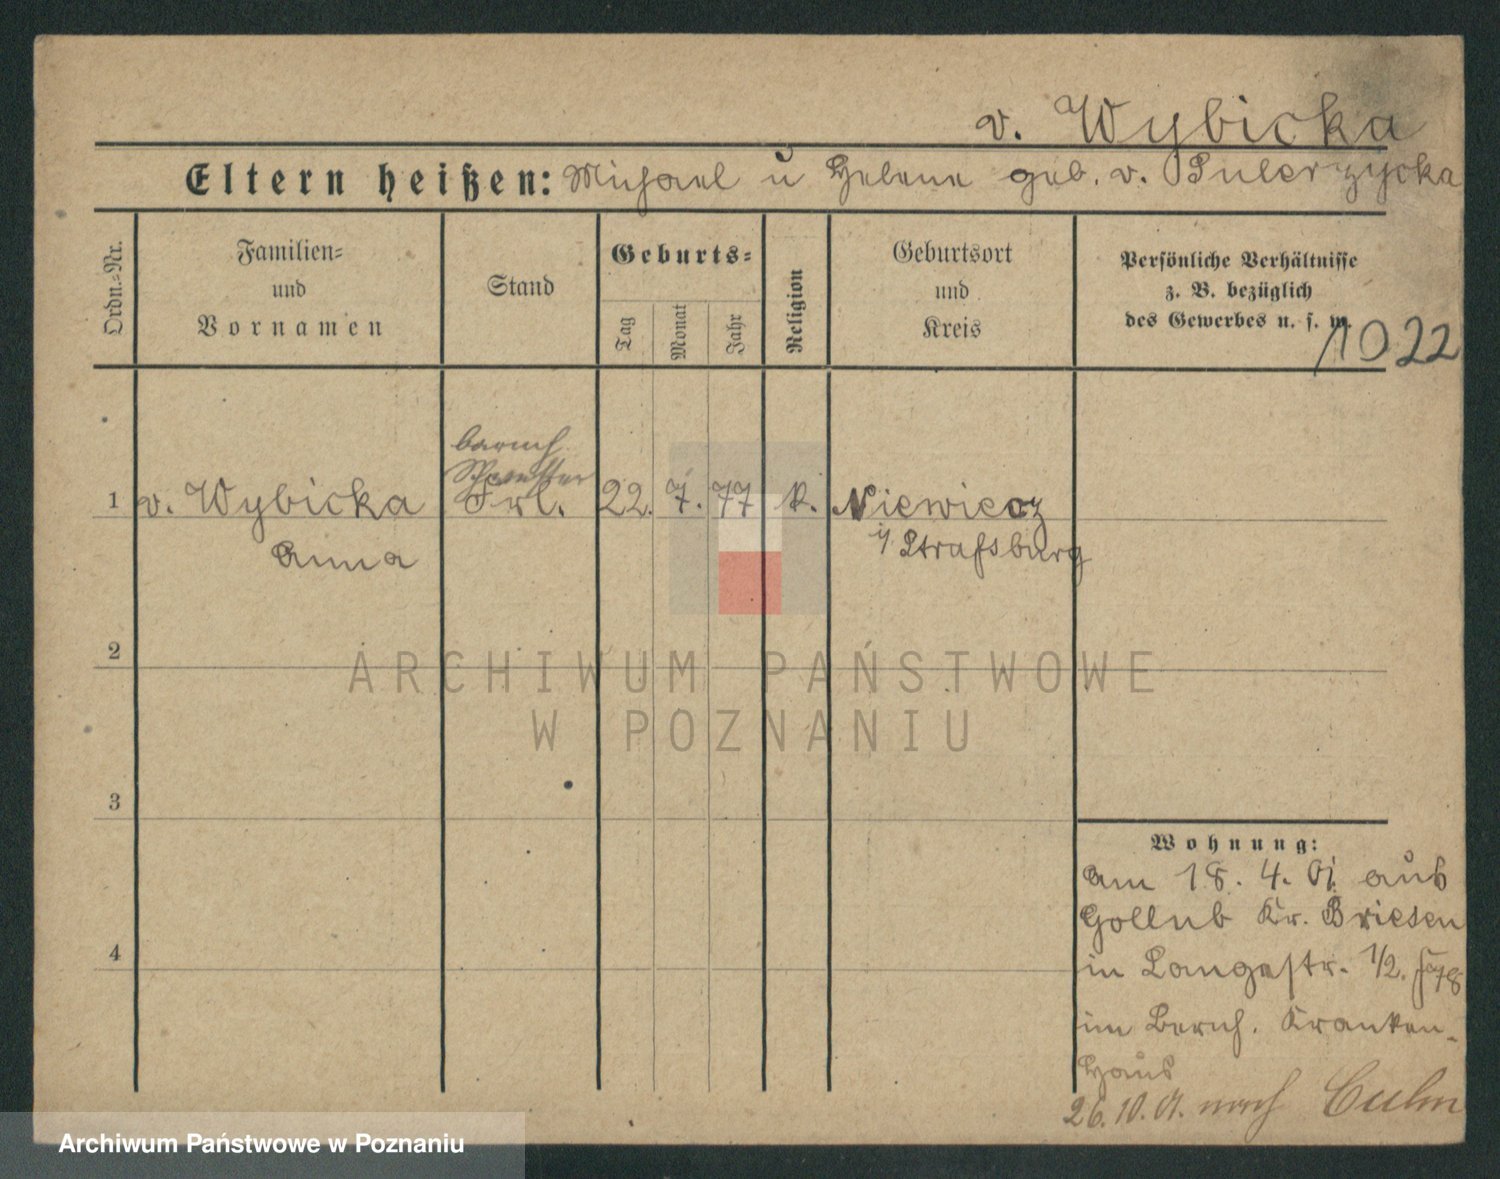 v. Wybicka
Eltern heißen: Michael u Helene geb. v. Pulerzycka
Ordn.-Nr.
Familien-
und
Vornamen
Stand
Geburts-
Tag
Monat
Jahr
Religion
Geburtsort
und
Kreis
Persönliche Verhältnisse
z. B. bezüglich
des Gewerbes u. s. w.
1022
barmh
Schwester
1 v. Wybicka Frl. 22. 7. 77 k. Niewierz
Anna i/ Strafsburg
2
ARCHIWUM PAŃSTWOWE
W POZNANIU
3
Wohnung:
am 18. 4. 01 aus
Gollub Kr. Briesen
4
in Langestr. 1/2.
im Barmh. Kranken-
Haus
26. 10. 01. nach Culm
Archiwum Państwowe w Poznaniu